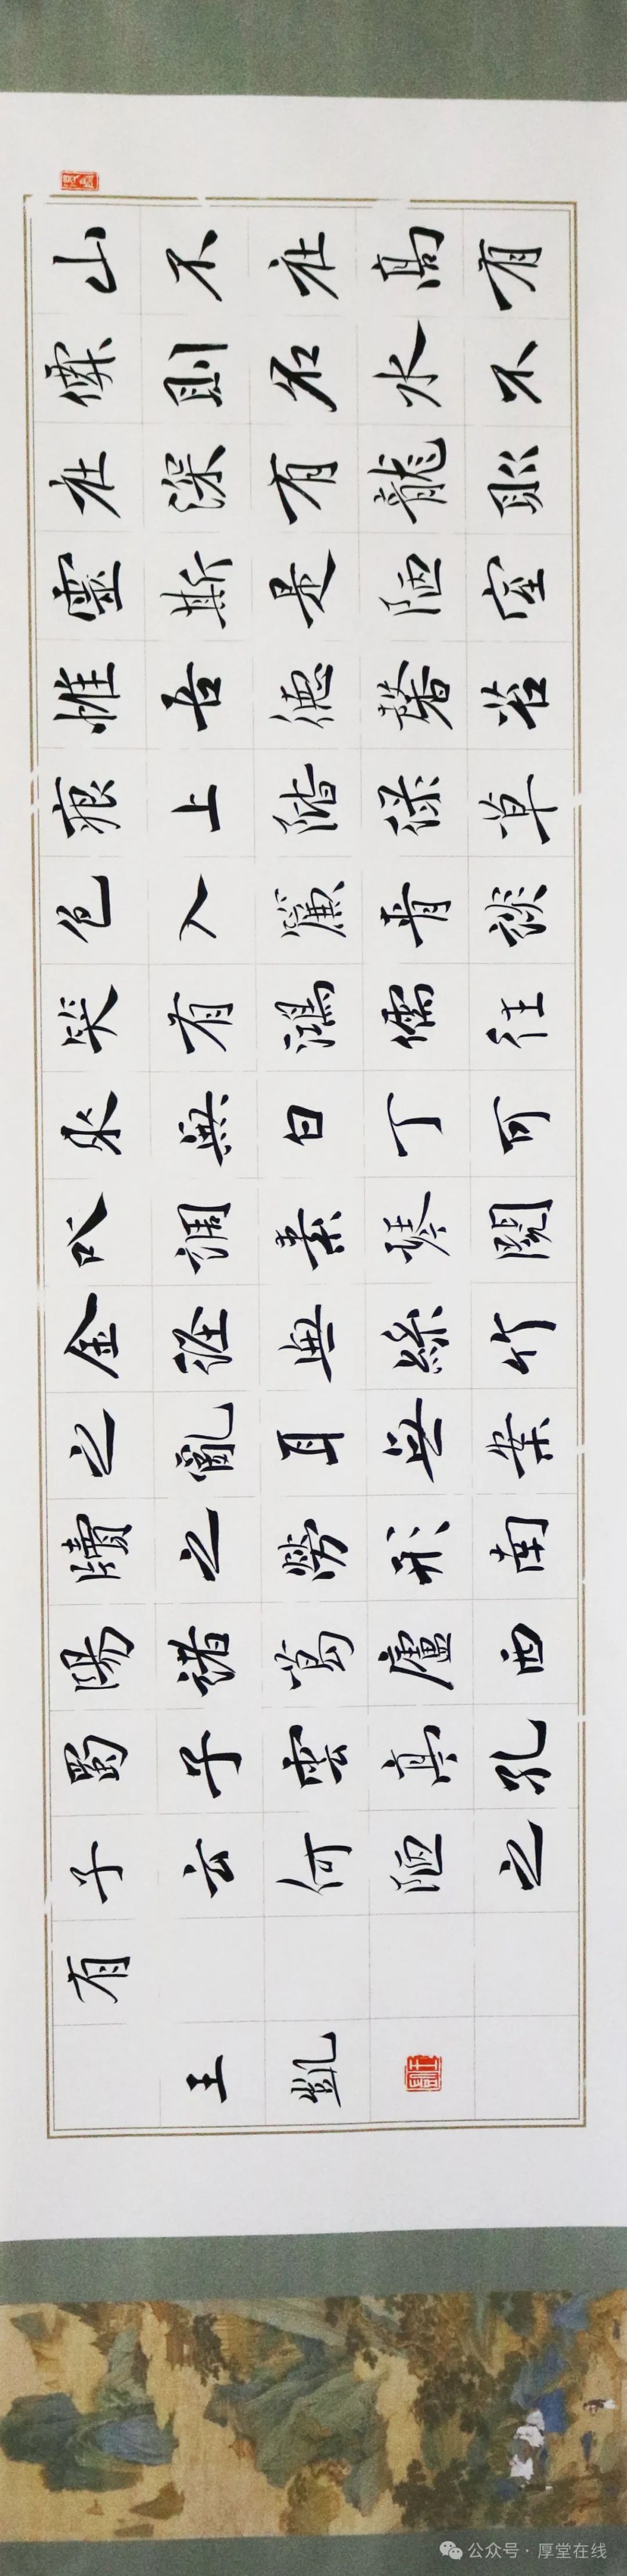 山不在高有
僊則名水不
在深有龍則
靈斯是陋室
惟吾德馨苔
痕上階緑草
色入簾青談
笑有鴻儒往
來無白丁可
以調素琴閱
金經無絲竹
之亂耳無案
牘之勞形南
陽諸葛廬西
蜀子雲亭孔
子云何陋之
有
王凱
公众号 · 厚堂在线